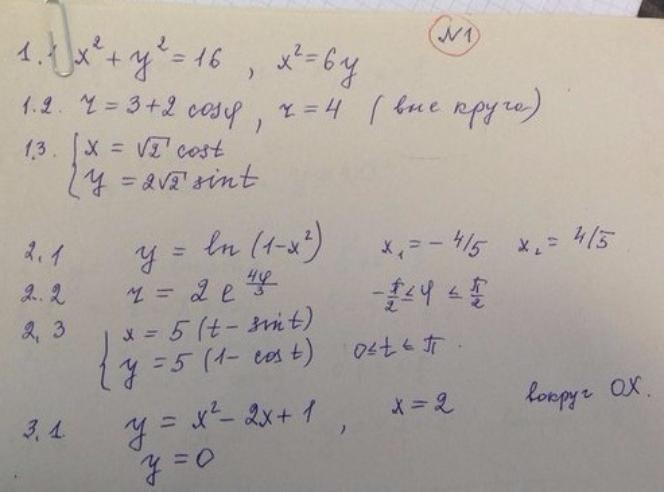 N1
1.1 x² + y² = 16 , x² = 6y
1.2. r = 3+2 cosφ , r = 4 (вне круга)
1.3. { x = √2 cost
y = 2√2 sint
2.1 y = ln (1-x²) x₁ = - 4/5 x₂ = 4/5
2.2 r = 2 e^(4φ/3) -π/2 ≤ φ ≤ π/2
2,3 { x = 5 (t - sint)
y = 5 (1- cost) 0≤t≤π.
3,1 y = x² - 2x + 1 , x = 2 вокруг OX.
y = 0